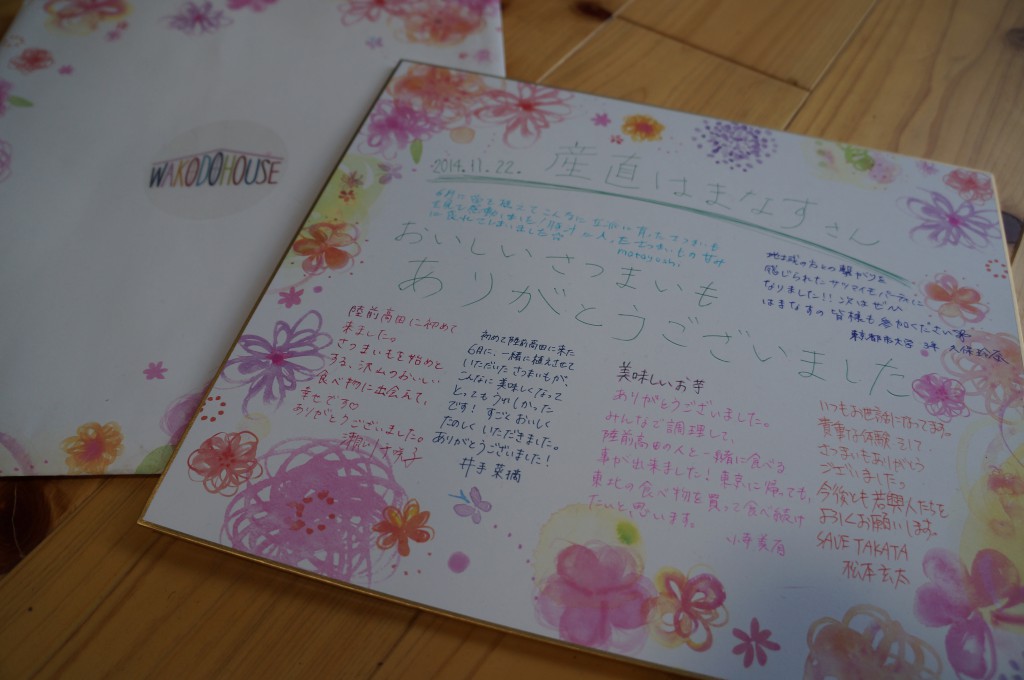 WAKODOHOUSE
2014.11.22.
産直はまなすさん
6月に
に育ったさつまいも
matayoshi
おいしいさつまいも
ありがとうございました
地域の方との繋がりを
感じられたサツマイモパーティに
なりました!!次はぜひ
はまなすの皆様も参加ください
東京都市大学 3年
陸前高田に初めて
来ました。
さつまいもを始めと
する、沢山のおいしい
食べ物に出会えて、
幸せです♡
ありがとうございました。
初めて陸前高田に来た
6月に、一緒に植えさせて
いただいたさつまいもが、
こんなに美味しくなって
とってもうれしかった
です!すごくおいしく
たのしくいただきました。
ありがとうございました!
井手 菜摘
美味しいお芋
ありがとうございました。
みんなで調理して、
陸前高田の人と一緒に食べる
事が出来ました!東京に帰っても、
東北の食べ物を買って食べ続け
たいと思います。
いつもお世話になってます。
貴重な体験 そして
さつまいもありがとう
ございましたっ
今後とも若興人たちを
よろしくお願いします。
SAVE TAKATA
松本玄太